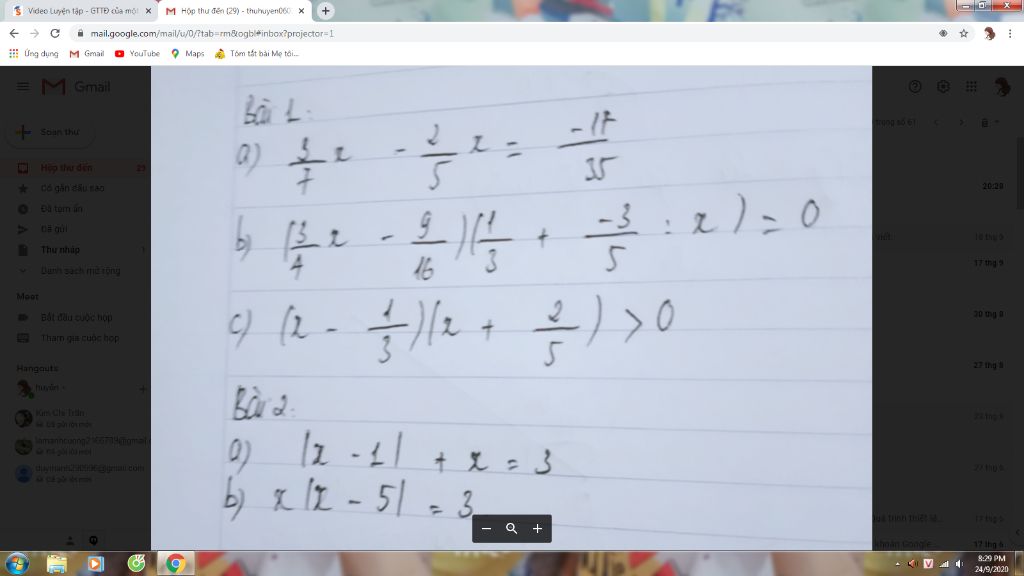 Video Luyện tập - GTTĐ của một
Hộp thư đến (29) - thuhuyen060
mail.google.com/mail/u/0/?tab=rm&ogbl#inbox?projector=1
Ứng dụng
Gmail
YouTube
Maps
Tóm tắt bài Mẹ tôi...
Gmail
Soạn thư
Hộp thư đến 29
Có gắn dấu sao
Đã tạm ẩn
Đã gửi
Thư nháp 1
Danh sách mở rộng
Meet
Bắt đầu cuộc họp
Tham gia cuộc họp
Hangouts
huyền
Kim Chi Trần
Đã gửi lời mời
lemanhcuong2166789@gmail.c
Đã gửi lời mời
duymanh290596@gmail.com
Đã gửi lời mời
Bài 1:
a) 3/7 x - 2/5 x = -17/35
b) (3/4 x - 9/16)(1/3 + -3/5 : x) = 0
c) (x - 1/3)(x + 2/5) > 0
Bài 2:
a) |x - 1| + x = 3
b) x|x - 5| = 3
trong số 61
20:28
viết:
18 thg 9
17 thg 9
30 thg 8
27 thg 8
23 thg 6
27 thg 6
Quá trình thiết lậ...
17 thg 6
khoản Google ...
17 thg 6
8:29 PM
24/9/2020